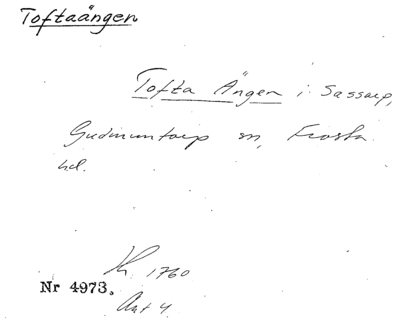 Toftaängen
Tofta Ängen i Sassarp,
Gudmuntorp sn, Frosta
hd.
1760
Nr 4973.
Akt 4